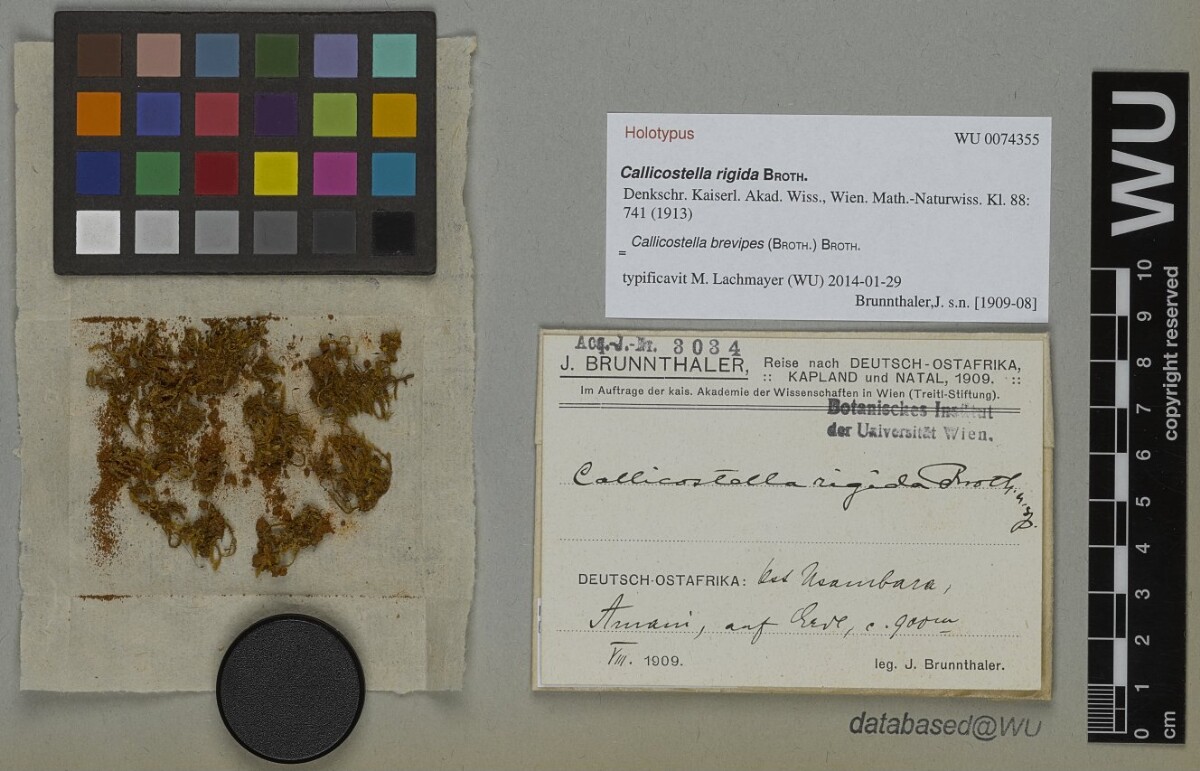 Holotypus
WU 0074355
Callicostella rigida BROTH.
Denkschr. Kaiserl. Akad. Wiss., Wien. Math.-Naturwiss. Kl. 88:
741 (1913)
= Callicostella brevipes (BROTH.) BROTH.
typificavit M. Lachmayer (WU) 2014-01-29
Brunnthaler,J. s.n. [1909-08]
Acq.-J.-Nr. 3034
J. BRUNNTHALER, Reise nach DEUTSCH-OSTAFRIKA,
:: KAPLAND und NATAL, 1909. ::
Im Auftrage der kais. Akademie der Wissenschaften in Wien (Treitl-Stiftung).
Botanisches Institut
der Universität Wien.
Callicostella rigida Broth. n. sp.
DEUTSCH-OSTAFRIKA: Ost Usambara,
Amani, auf Erde, c. 900 m
VIII. 1909.
leg. J. Brunnthaler.
databased@WU
WU
copyright reserved
10
9
8
7
6
5
4
3
2
1
0
cm